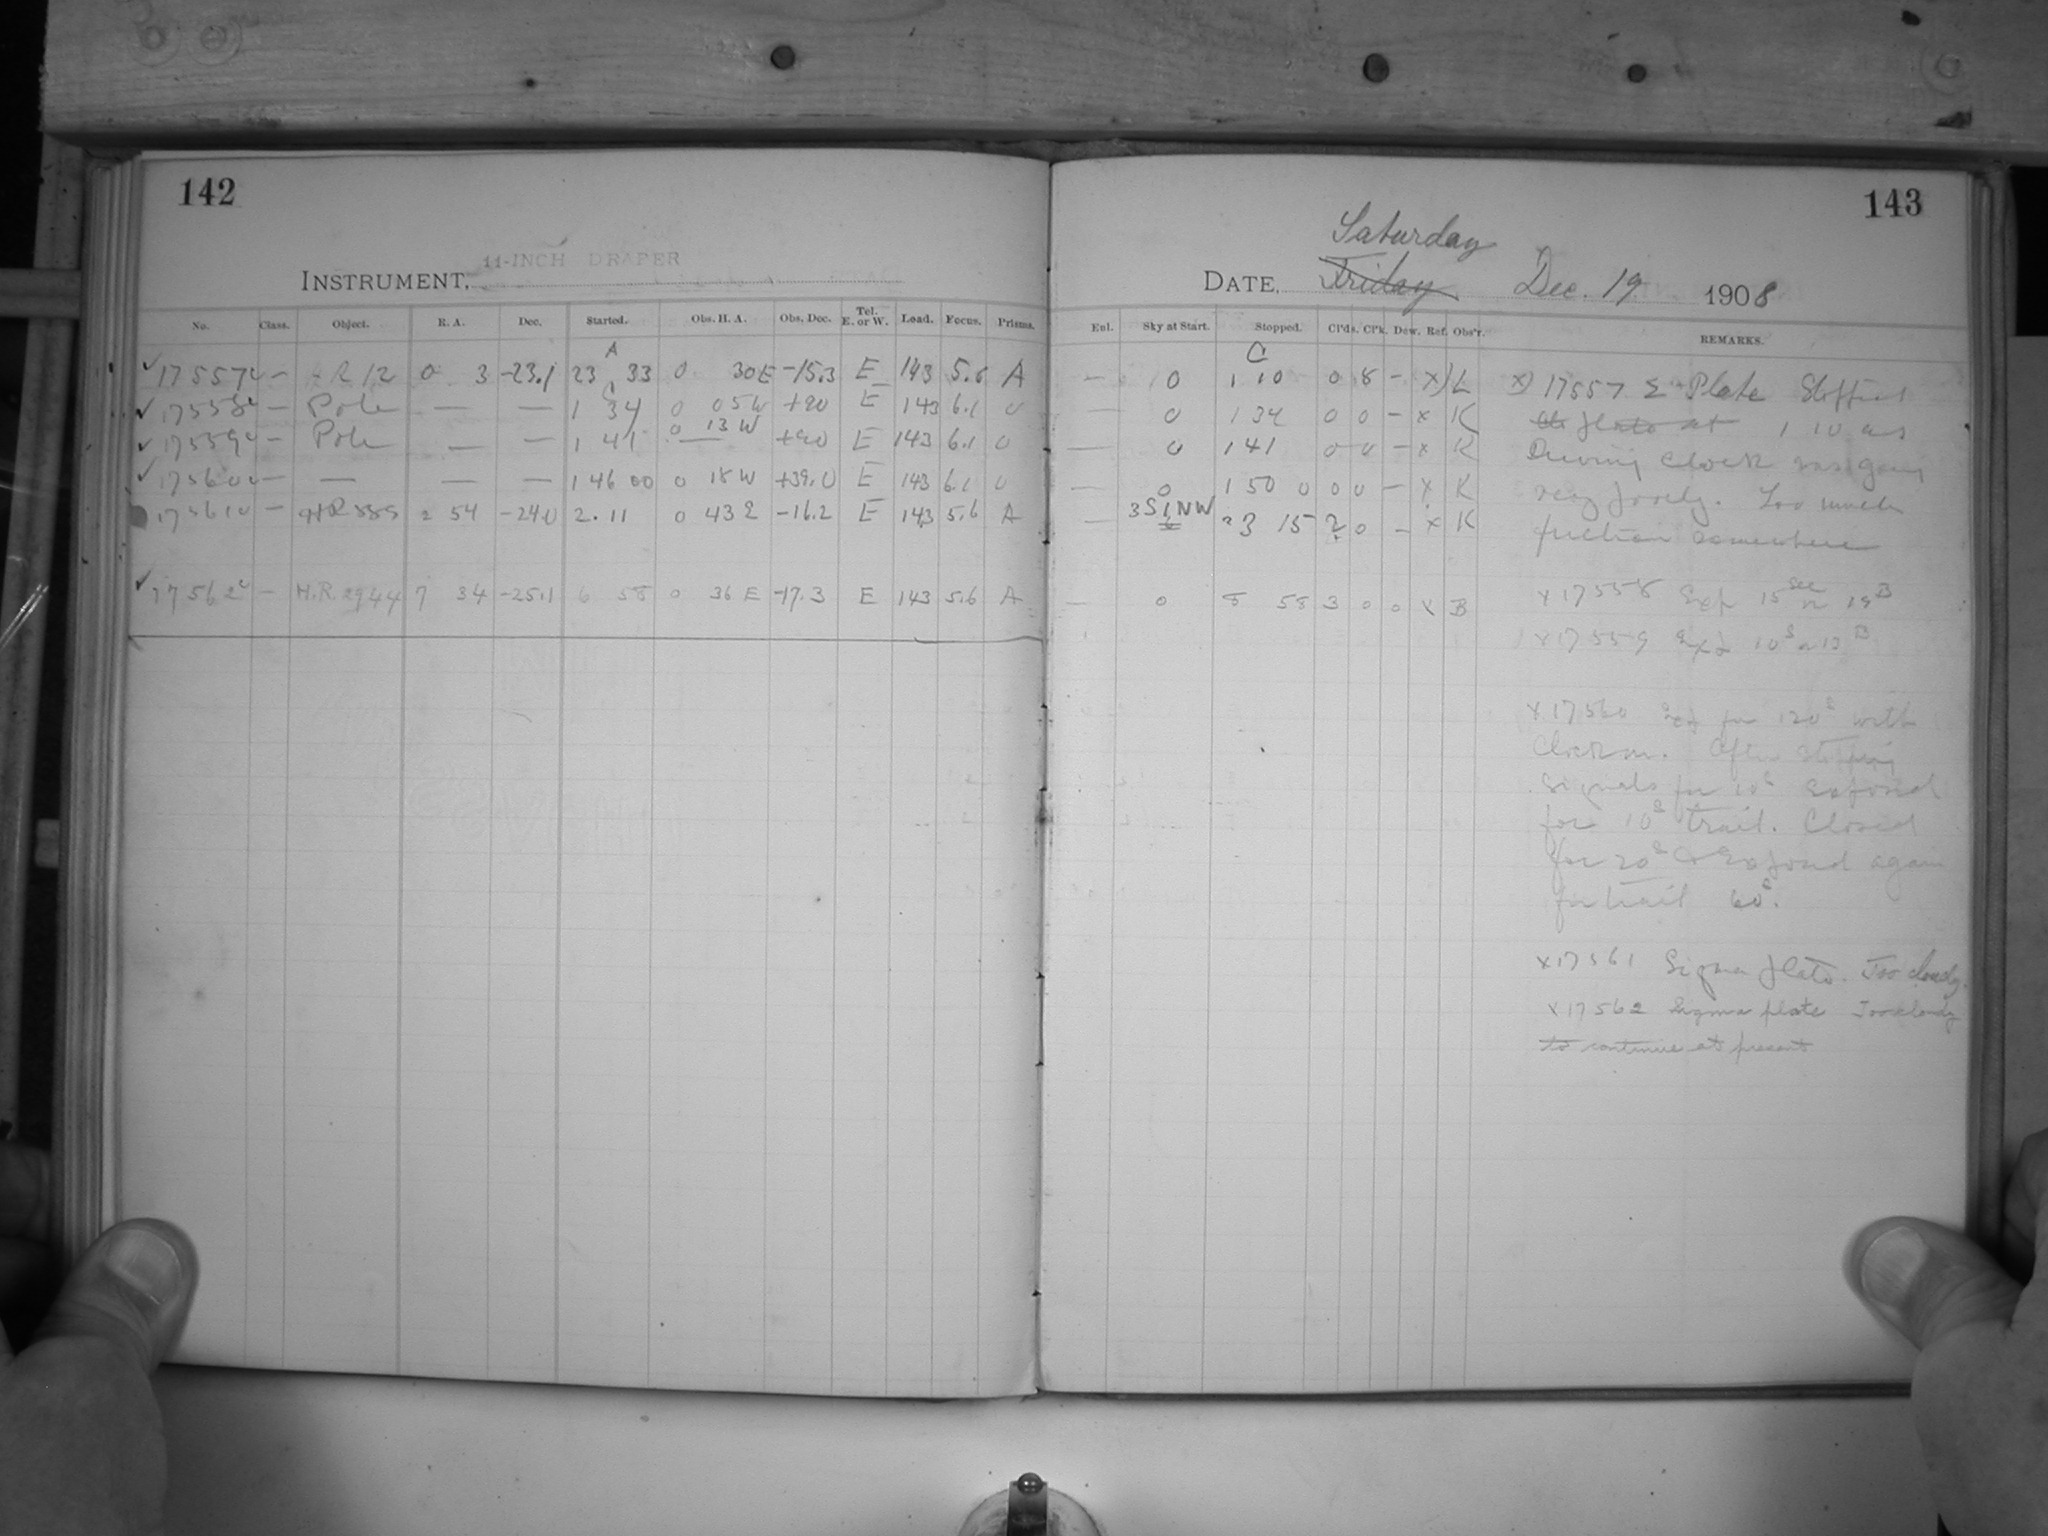 142
INSTRUMENT, 11-INCH DRAPER
No. Class. Object. R. A. Dec. Started. Obs. H. A. Obs. Dec. Tel. E. or W. Load. Focus. Prisms.
A
✓ 17557 — HR 12 0 3 -23.1 23 33 0 30 E -15.3 E 143 5.6 A
✓ 17558 — Pole — — 1 34 0 05 W +90 E 143 6.1 0
✓ 17559 — Pole — — 1 41 0 13 W +90 E 143 6.1 0
✓ 17560 — — — — 1 46 00 0 18 W +39.0 E 143 6.1 0
17561 — HR 889 2 54 -24.0 2.11 0 43 E -16.2 E 143 5.6 A
✓ 17562 — H.R. 2944 7 34 -25.1 6 58 0 36 E -17.3 E 143 5.6 A
143
Saturday
DATE, Friday Dec. 19 1908
Enl. Sky at Start. Stopped. Cl'ds. Cl'k. Dew. Ref. Obs'r. REMARKS.
C
— 0 1 10 0 8 — x) L
— 0 1 34 0 0 — x K
— 0 1 41 0 0 — x K
— 0 1 50 0 0 0 — x K
— 3 S 1 NW 3 15 2 0 — x K
— 0 8 58 3 0 0 x B
x) 17557 Σ Plate Stopped
at 1 10 as
Driving clock was going
very . Too much
friction somewhere
x 17558 Exp 15 sec on 19 B
x 17559 Exp 10 s 13 B
x 17560 Exp for 120 s with
Clock on. After stopping
signals for 10 s exposed
for 10 s trail. Closed
for 20 s & exposed again
for trail 60 s.
x 17561 Sigma plate. Too cloudy.
x 17562 Sigma plate Too cloudy
to continue at present